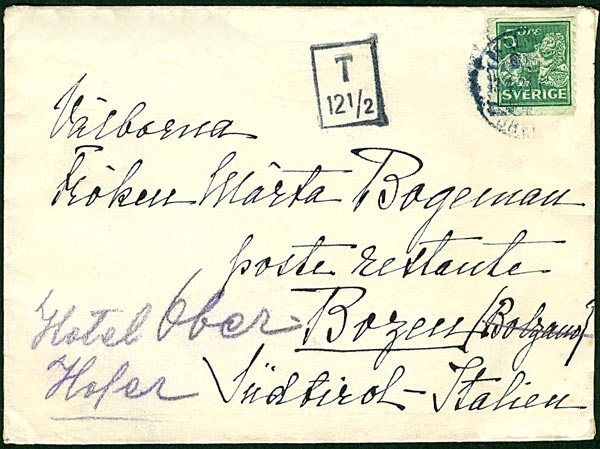 5 ÖRE
SVERIGE
T
12 1/2
Välborna
Fröken Märta Bogeman
poste restante
Bozen (Bolzano)
Südtirol-Italien
Hotel Ober-
Hofer